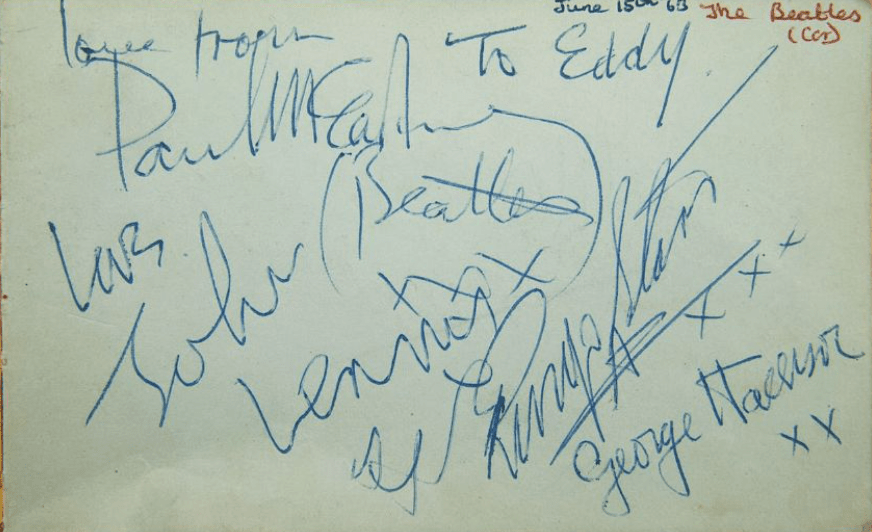 June 15th 63
The Beatles
(Cor)
love from
To Eddy
Paul McCartney
(Beatles)
love
John
Lennon
xxx
&
Ringo Starr
xxx
George Harrison
xx